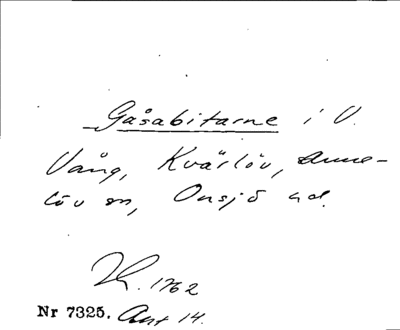 Gåsabitarne i V.
Vång, Kvärlöv, Anne-
löv sn, Onsjö hd.
1762
Nr 7325. Ant 14.